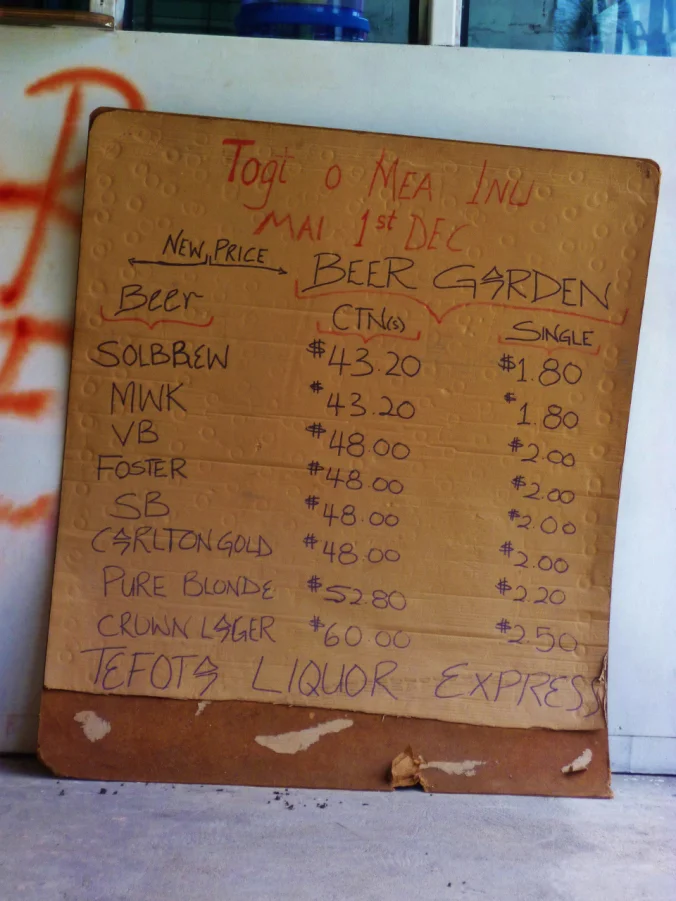 Togt o MEA INU
MAI 1st DEC
NEW PRICE BEER GARDEN
Beer CTN(s) SINGLE
SOLBREW $43.20 $1.80
MWK $43.20 $1.80
VB $48.00 $2.00
FOSTER $48.00 $2.00
SB $48.00 $2.00
CARLTON GOLD $48.00 $2.00
PURE BLONDE $52.80 $2.20
CROWN LAGER $60.00 $2.50
TEFOTA LIQUOR EXPRESS